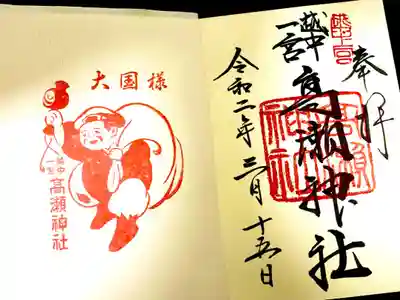 奉拝
越中
一宮
高瀬神社
令和二年三月十五日
大国様
越中
一宮
高瀬神社